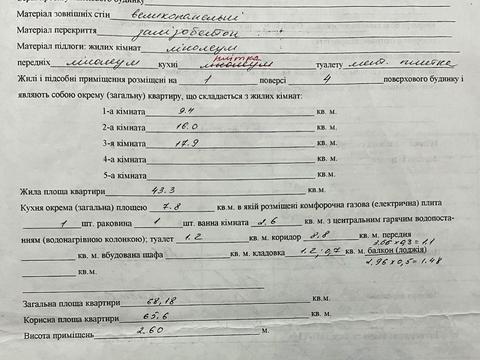 Матеріал зовнішніх стін великопанельні
Матеріал перекриття залізобетон
Матеріал підлоги: жилих кімнат лінолеум
передніх лінолеум кухні плітка лінолеум туалету мет. плитка
Жилі і підсобні приміщення розміщені на 1 поверсі 4 поверхового будинку і
являють собою окрему (загальну) квартиру, що складається з жилих кімнат:
1-а кімната 9.4 кв. м.
2-а кімната 16.0 кв. м.
3-я кімната 17.9 кв. м.
4-а кімната кв. м.
5-а кімната кв.м.
Жила площа квартири 43.3 кв. м.
Кухня окрема (загальна) площею 7.8 кв.м. в якій розміщені комфорочна газова (електрична) плита
1 шт. раковина 1 шт. ванна кімната 2.6 кв. м. з центральним гарячим водопоста-
нням (водонагрівною колонкою); туалет 1.2 кв. м. коридор 8.8 кв. м. передня
кв. м. вбудована шафа кв. м. кладовка 1.2; 0,7 кв. м. балкон (лоджія)
3.66 x 0,3 = 1.1
2,96 x 0,5 = 1.48
кв. м.
Загальна площа квартири 68,18 кв. м.
Корисна площа квартири 65,6 кв. м.
Висота приміщень 2.60 м.